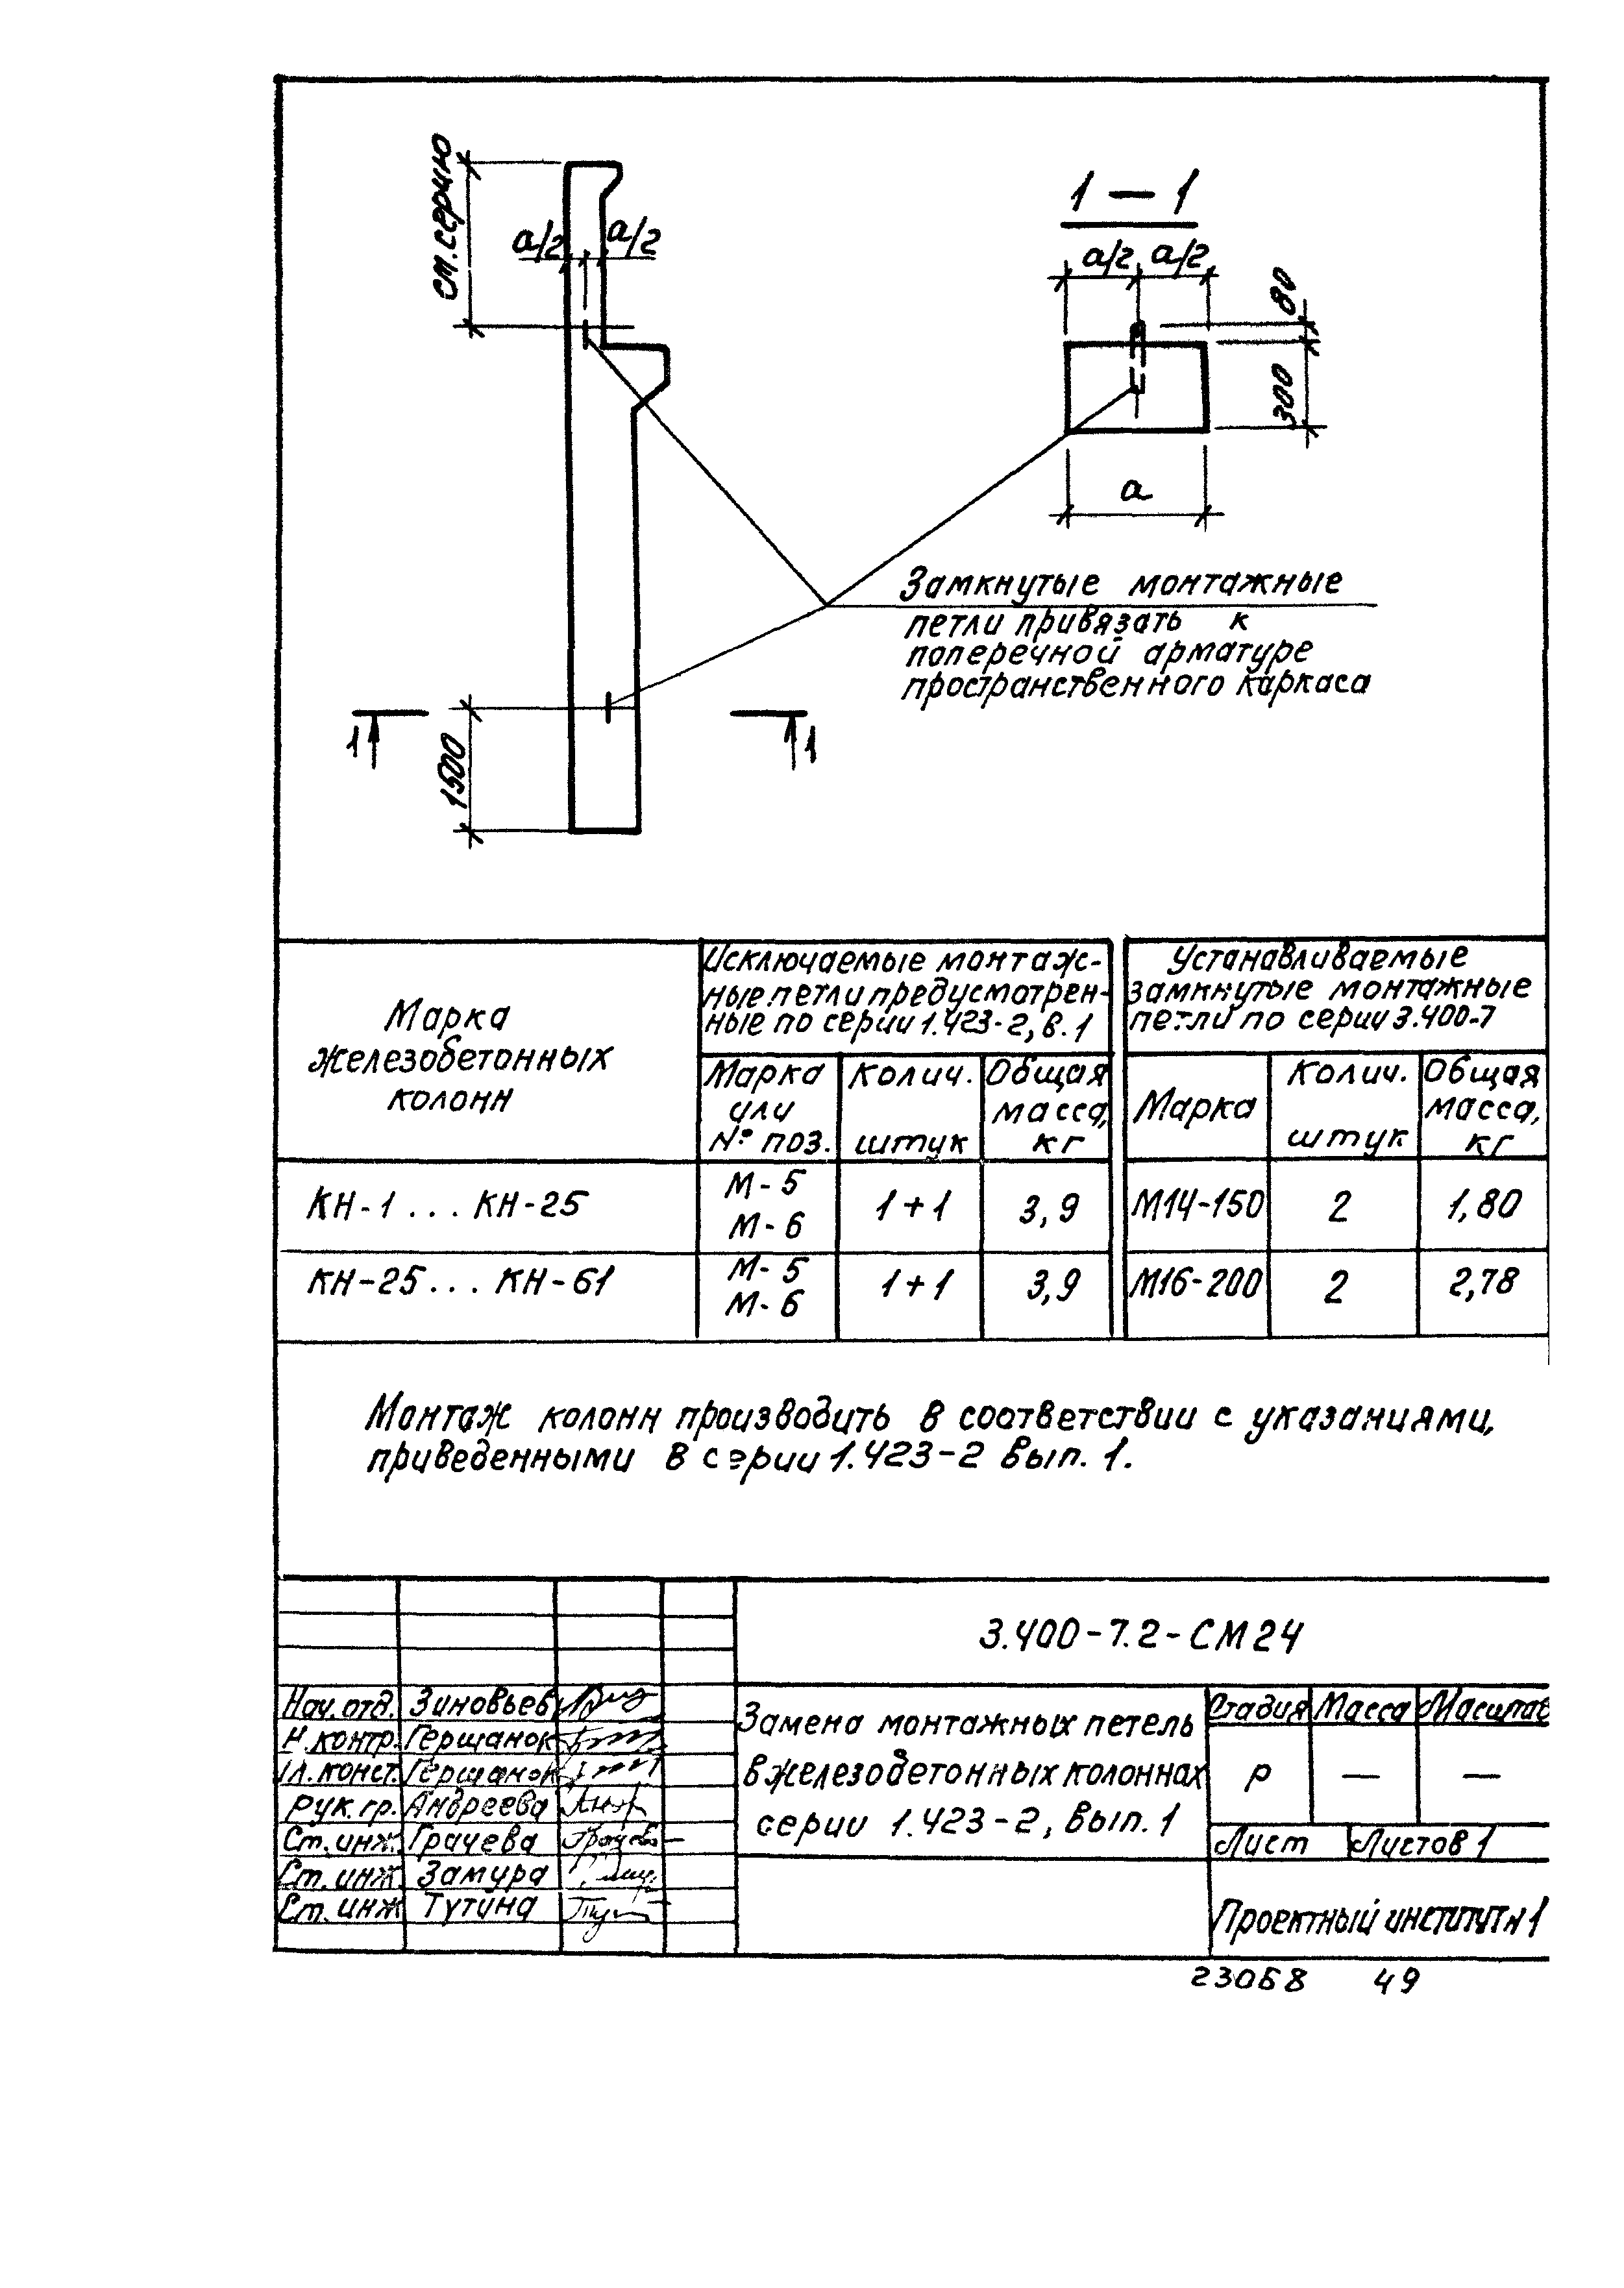 см. серию
а/2 а/2
1 — 1
а/2 а/2
80
300
а
Замкнутые монтажные
петли привязать к
поперечной арматуре
пространственного каркаса
1 1
1500
Марка
железобетонных
колонн
Исключаемые монтаж-
ные петли предусмотрен-
ные по серии 1.423-2, в.1
Устанавливаемые
замкнутые монтажные
петли по серии 3.400-7
Марка
или
№ поз.
Колич.
штук
Общая
масса,
кг
Марка
Колич.
штук
Общая
масса,
кг
КН-1 ... КН-25
М-5
М-6
1+1 3,9 М14-150 2 1,80
КН-25 ... КН-61
М-5
М-6
1+1 3,9 М16-200 2 2,78
Монтаж колонн производить в соответствии с указаниями,
приведенными в серии 1.423-2 вып. 1.
3.400-7.2-СМ24
Нач. отд. Зиновьев
Н. контр. Гершанок
Гл. конст. Гершанок
Рук. гр. Андреева
Ст. инж. Грачева
Ст. инж Замура
Ст. инж Тутина
Замена монтажных петель
в железобетонных колоннах
серии 1.423-2, вып. 1
Стадия Масса Масштаб
Р — —
Лист Листов 1
Проектный институт №1
23068 49